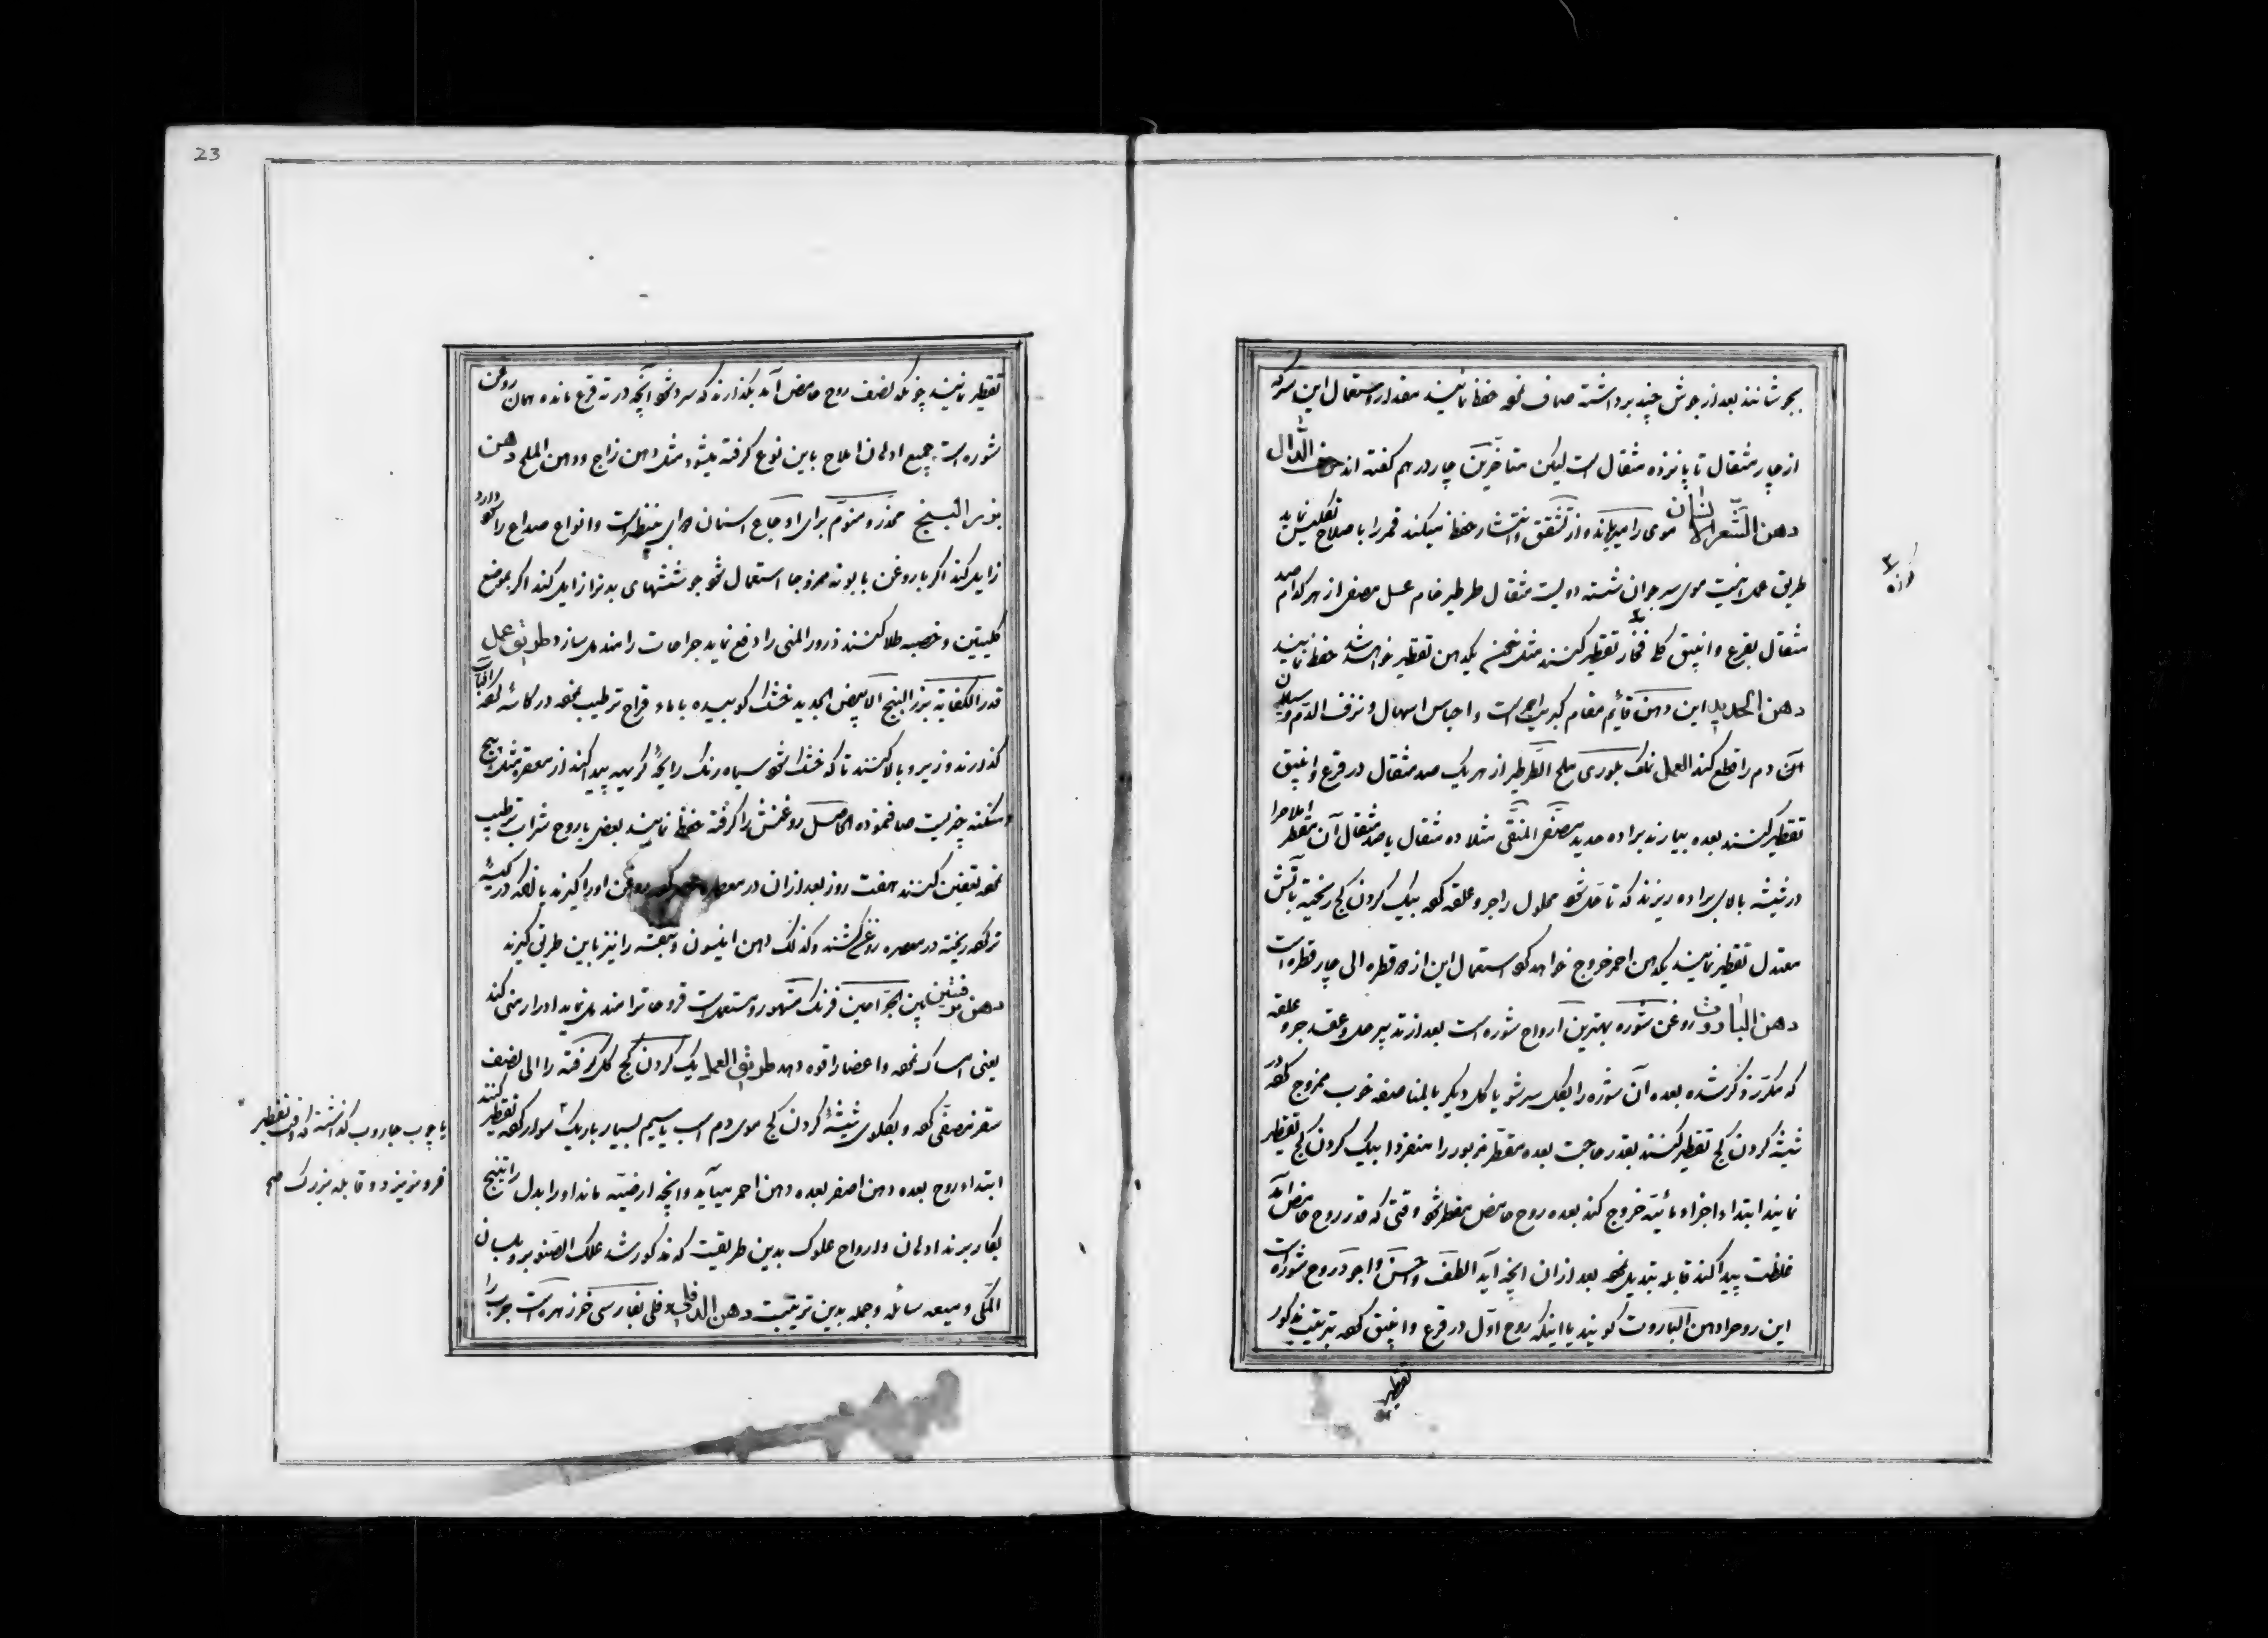 بجوشانند بعد از جوش چند برداشته صاف نموده حفظ نمایند مقدار استعمال این سرکه
از چار مثقال تا پانزده مثقال است لیکن متأخرین چار درهم گفته اند حرف الدال
دهن الشعر الانسان موی را میرویاند و از تشقق و انتشار حفظ میکند قمر را با صلاح تکلیس نماید
طریق عمل اینست موی سر جوان شسته دویست مثقال طرطیر خام عسل مصفی از هر کدام صد
مثقال بقرع و انبیق کلی فخار تقطیر کنند مثل یکدهن تقطیر خواهد شد حفظ نمایند
دهن الحدید این دهن قائم مقام کبریت احمر است و احباس اسهال و نزف الدم و سیلان
دم را قطع کند العمل نمک بلوری ملح الطرطیر از هر یک صد مثقال در قرع و انبیق
تقطیر کنند بعده بیارند براده حدید مصفی المنقی مثلا ده مثقال با صد مثقال آن مقطر املاح را
در شیشه بالای براده ریزند که تا حل شود محلول را جر و علقه کرده بیک کردن کج ریخته بآتش
معتدل تقطیر نمایند یکدهن احمر خروج خواهد کرد استعمال این از قطره الی چار قطره است
دهن البارود روغن شوره بهترین ارواح شوره است بعد از تدبیر حل و عقد جر و علقه
که مکرر ذکر شده بعده آن شوره را بکل سرشو یا کل دیگر بالمناصفه خوب ممزوج کرده در
شیشه کردن کج تقطیر کنند بقدر حاجت بعده مقطر مزبور را منفردا بیک کردن کج تقطیر
نمایند ابتداء اجزاء مائیه خروج کند بعده روح حامض مقطر شود وقتی که قدر روح حامض آمد
غلظت پیدا کند قابله تبدیل نموده بعد از ان انچه آید الطف و احسن و اجود روح شوره است
این روح را دهن البارود گویند یا اینکه روح اول در قرع و انبیق کرده بترتیب مذکور
تقطیر
تقطیر نمایند چونکه نصف روح حامض آمد بگذارند که سرد شود آنچه در ته قرع مانده همان روغن
شوره است جمیع ادهان املاح باین نوع گرفته میشود مثل دهن زاج و دهن الملح دهن
بزر البنج مخدر و منوم برای اوجاع اسنان بی نظیر است و انواع صداع را که دارد
زایل کند اکر با روغن بابونه ممزوجا استعمال شود جوششهای بدنرا زایل کند اکر بموضع
کلیتین و خصیه طلا کنند ذرور المنی را دفع نماید جراحات را مندمل سازد طریق عمل
قدر الکفایة بزر البنج الابیض الجدید خشک کوبیده با ماء قراح ترطیب نموده در کاسه کرده
گذارند و زیر و بالا کنند تا که خشک شود سیاه رنگ رایحه کریهه پیدا کند از معصره مثل
چیزیست صاف نموده الحاصل روغنش را گرفته حفظ نمایند بعضی با روح شراب ترطیب
نموده تعفین کنند هفت روز بعد از ان در معصره روغن او را گیرند یا انکه در کیسه
تر کرده ریخته در معصره روغن کشند و کذلک دهن انیسون و را نیز باین طریق گیرند
دهن بین الجراحین فرنگ مشهور و مستعمل است قروحاترا مندمل نماید ادرار منی کند
یعنی امساک نموده و اعضا را قوه دهد طریق العمل یک کردن کج کل گرفته را الی نصف
سقز مصفی کرده و بکلوی شیشه کردن کج موی دم اسب یا سیم بسیار باریک سوار کرده تقطیر کنند
ابتداء روح بعده دهن اصفر بعده دهن احمر میآید و انچه ارضیه ماند او را بدل راتینج
بکار برند ادهان و ارواح علوک بدین طریقت که مذکور شد علک الصنوبر و بلسان
المکی و میعه سائله و جمله بدین ترتیبت دهن الدفلی دفلی بفارسی خرزهره است جرب را
یا چوب جاروب گذاشته که وقت تقطیر
فرو نریزد و قابله بزرگ صح
23